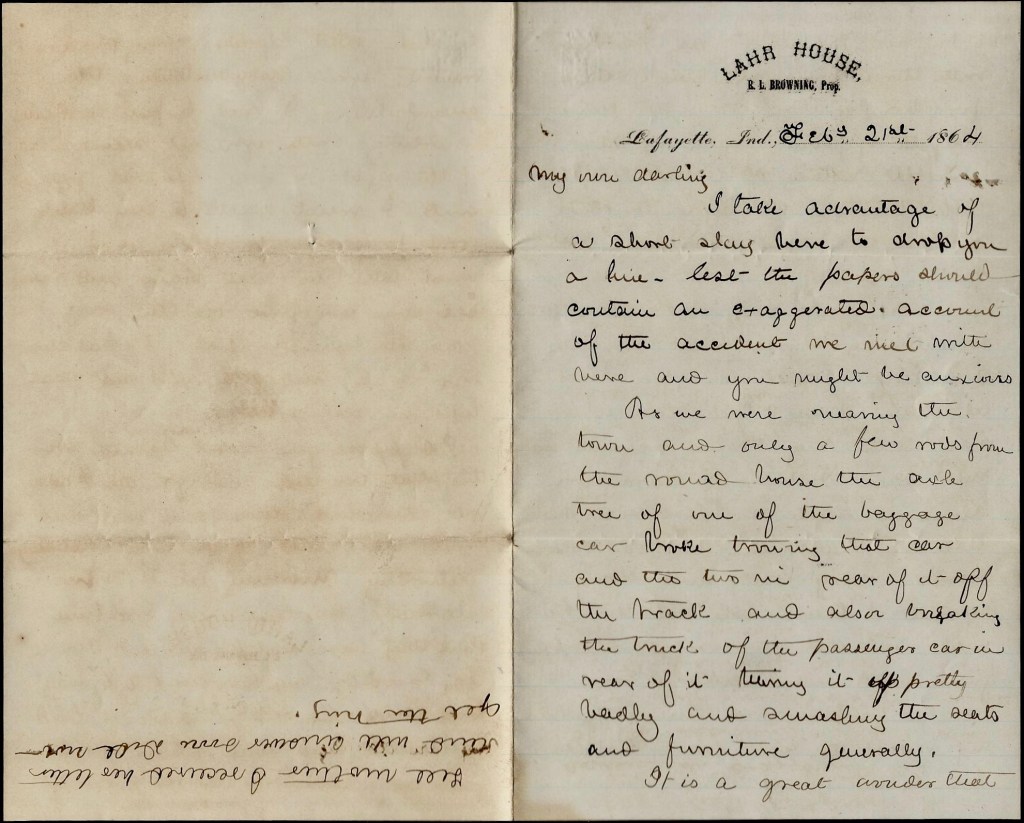 LAHR HOUSE,
R. L. BROWNING, Prop.
Lafayette, Ind., Feby 21st 1864
My own darling
I take advantage of
a short stay here to drop you
a line - lest the papers should
contain an exaggerated account
of the accident we met with
here and you might be anxious
As we were nearing the
town and only a few rods from
the round house the axle
tree of one of the baggage
car broke trowing that car
and the two in rear of it off
the track and also breaking
the truck of the passenger car in
rear of it turing it up pretty
badly and smashing the seats
and furniture generally.
It is a great wonder that
Tell mother I received her letter
and will answer soon Did not
get the ring.